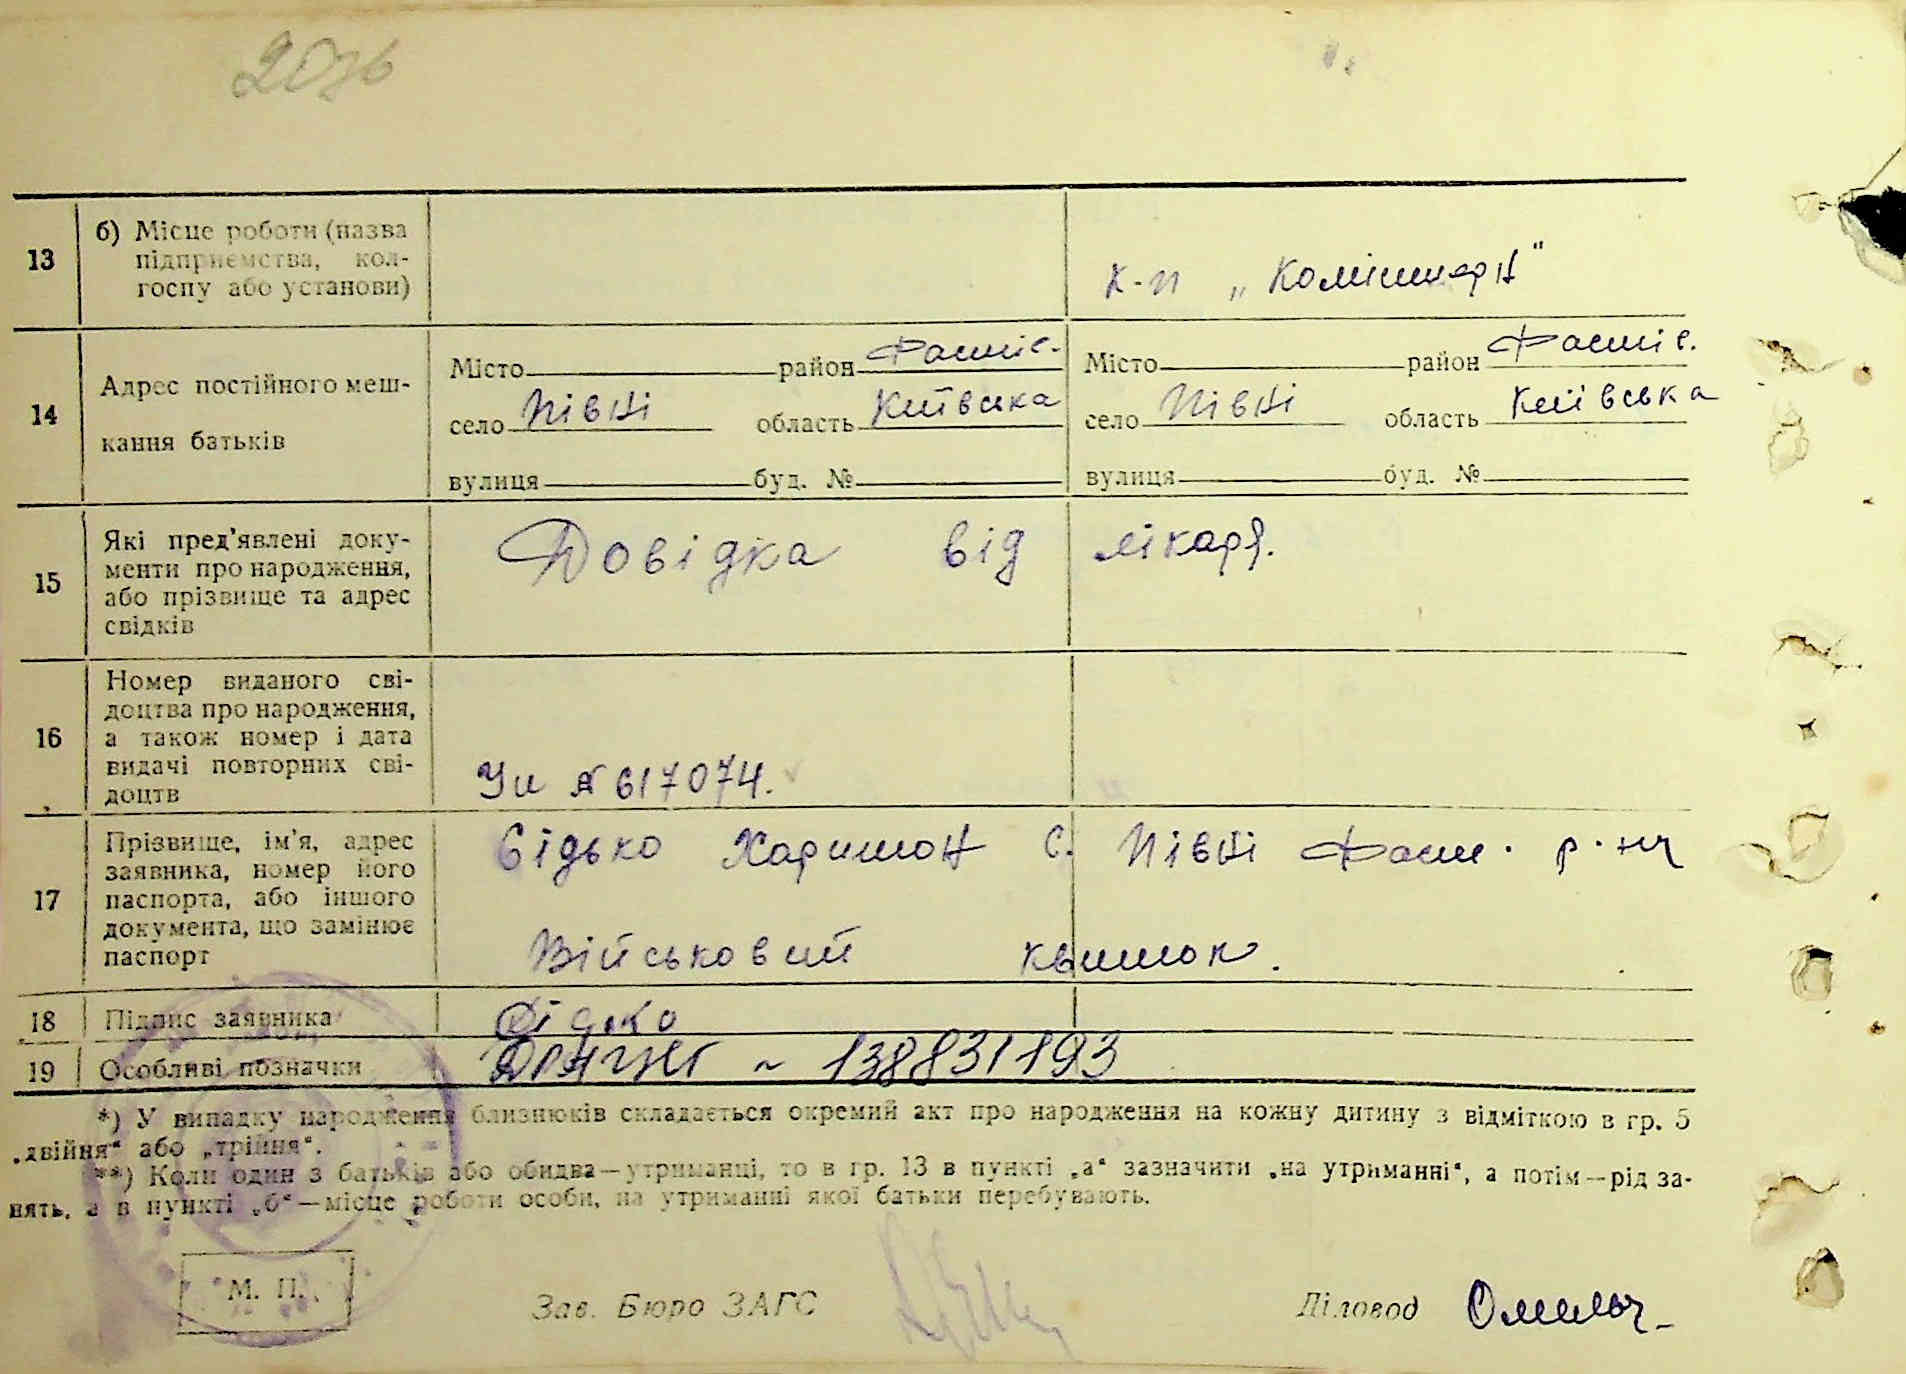 13
б) Місце роботи (назва
підприємства, кол-
госпу або установи)
к-п „Комінтерн“
14
Адрес постійного меш-
кання батьків
Місто район Фастів. Місто район Фастів.
село Півні область Київська село Півні область Київська
вулиця буд. № вулиця буд. №
15
Які пред’явлені доку-
менти про народження,
або прізвище та адрес
свідків
Довідка від лікаря.
16
Номер виданого сві-
доцтва про народження,
а також номер і дата
видачі повторних сві-
доцтв
№ 617074.
17
Прізвище, ім’я, адрес
заявника, номер його
паспорта, або іншого
документа, що замінює
паспорт
Сідько Харитон с. Півні Фаст. р-ну
Військовий квиток.
18 Підпис заявника Сідько
19 Особливі позначки ~ 138831193
*) У випадку народження близнюків складається окремий акт про народження на кожну дитину з відміткою в гр. 5
„двійня“ або „трійня“.
**) Коли один з батьків або обидва—утриманці, то в гр. 13 в пункті „а“ зазначити „на утриманні“, а потім—рід за-
нять, а в пункті „б“—місце роботи особи, на утриманні якої батьки перебувають.
М. П.
Зав. Бюро ЗАГС
Діловод